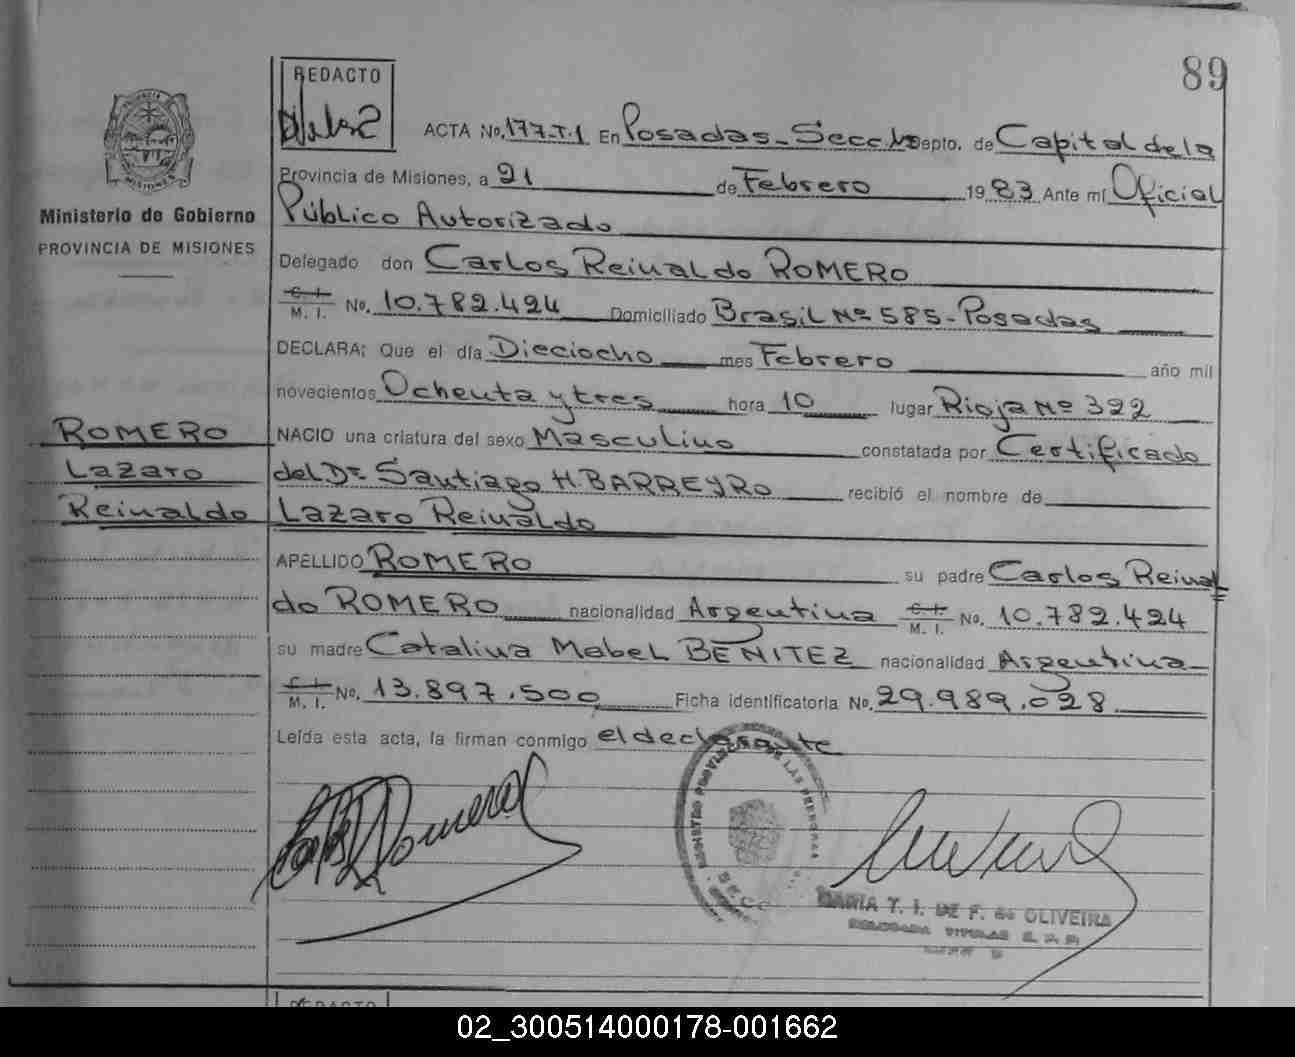 89
REDACTO
ACTA No. 177-T-1 En Posadas - Secc. Depto. de Capital de la
Provincia de Misiones, a 21 de Febrero 19 83 Ante mí Oficial
Público Autorizado
Delegado don Carlos Reinaldo ROMERO
C. I.
M. I. No. 10.782.424 Domiciliado Brasil Nº 585 - Posadas
DECLARA: Que el día Dieciocho mes Febrero año mil
novecientos Ochenta y tres hora 10 lugar Rioja Nº 322
NACIO una criatura del sexo Masculino constatada por Certificado
del Dr Santiago H BARREYRO recibió el nombre de
Lazaro Reinaldo
APELLIDO ROMERO su padre Carlos Reinal
do ROMERO nacionalidad Argentina C. I. M. I. No. 10.782.424
su madre Catalina Mabel BENITEZ nacionalidad Argentina
C. I.
M. I. No. 13.897.500 Ficha identificatoria No. 29.989.028
Leída esta acta, la firman conmigo el declarante
PROVINCIA DE MISIONES
Ministerio de Gobierno
PROVINCIA DE MISIONES
ROMERO
Lazaro
Reinaldo
REGISTRO PROVINCIAL DE LAS PERSONAS
SECC
MARIA T. I. DE F. de OLIVEIRA
DELEGADA TITULAR R. P. P.
REDACTO
02_300514000178-001662